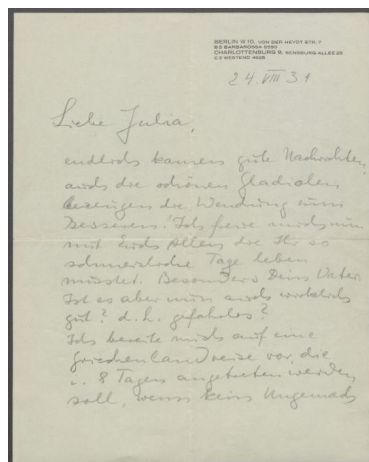 BERLIN W 10, VON DER HEYDT STR. 7
B 2 BARBAROSSA 9590
CHARLOTTENBURG 9, AHORN-ALLEE 25
C 3 WESTEND 4628
24. VIII 31
Liebe Julia,
endlich kamen gute Nachrichten,
auch die schönen Gladiolen
bezeugen die Wendung zum
Besseren! Ich freue mich nun
mit Euch Allen die Ihr so
schmerzliche Tage leben
musstet. Besonders Dein Vater.
Ist es aber nun auch wirklich
gut? d.h. gefahrlos?
Ich bereite mich auf eine
Griechenlandreise vor, die
8 Tagen angetreten werden
soll, wenn kein Ungemach